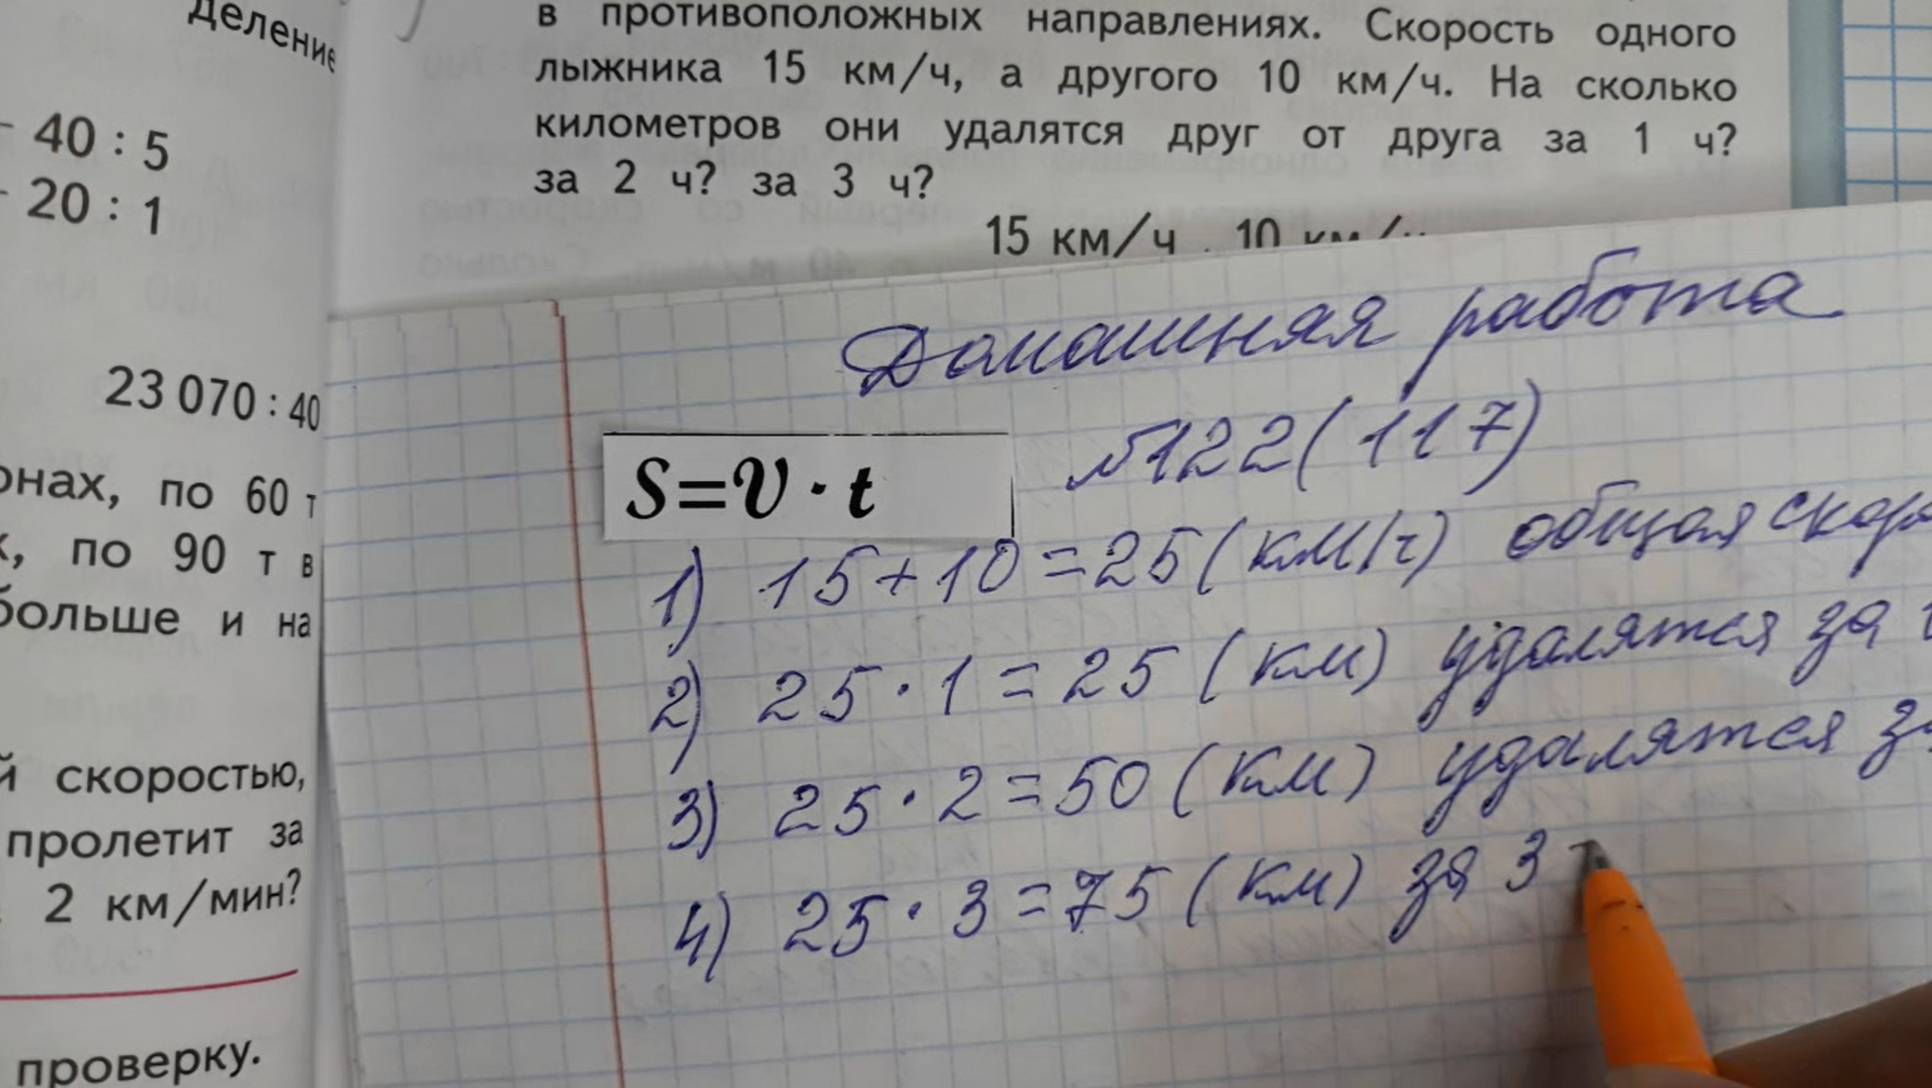 деление
40 : 5
20 : 1
23 070 : 40
по 60 т
по 90 т в
больше и на
скоростью,
пролетит за
2 км/мин?
проверку.
в противоположных направлениях. Скорость одного
лыжника 15 км/ч, а другого 10 км/ч. На сколько
километров они удалятся друг от друга за 1 ч?
за 2 ч? за 3 ч?
15 км/ч 10 км/ч
Домашняя работа
№122(117)
S=V·t
1) 15+10=25(км/ч) общая
2) 25·1=25(км) удалятся за
3) 25·2=50(км) удалятся
4) 25·3=75(км) за 3